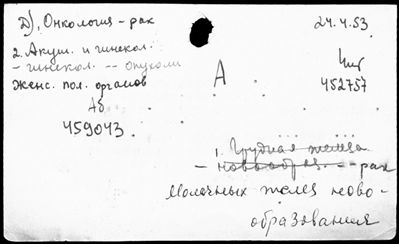 Д), Онкология - рак
24.4.53.
2. Акуш. и гинекол.
- гинекол. -- опухоли
женс. пол. органов
А
452757
Аб
459043.
1. Грудная железа
- новообраз. -- рак
Молочных желез ново-
образования